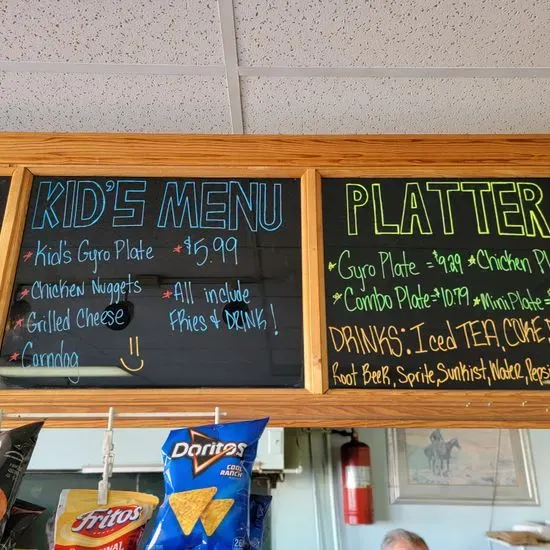 KID'S MENU
* Kid's Gyro Plate
* Chicken Nuggets
* Grilled Cheese
* Corndog
* $5.99
* All include
FRies & DRINK!
PLATTER
* Gyro Plate = $9.29 * Chicken Pl
* Combo Plate = $10.79 * Mini Plate =
DRINKS: Iced TEA, COKE,
Root Beer, Sprite, Sunkist, Water, Pepsi
Doritos
COOL
RANCH
Fritos
ORIGINAL